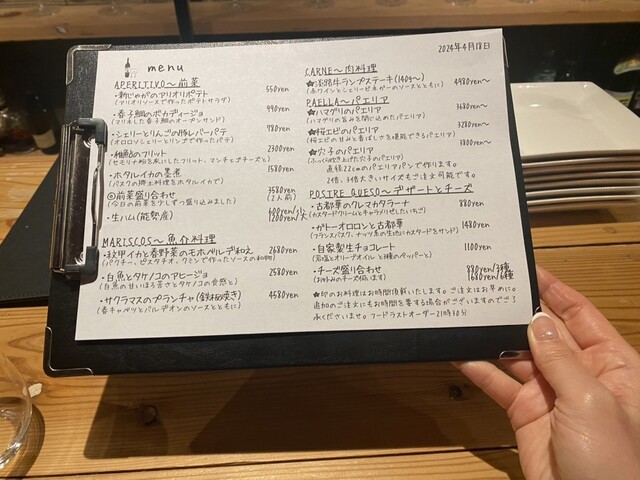 menu
2024年4月18日
APERITIVO〜前菜
・新じゃがのアリオリポテト 550yen
(アリオリソースで作ったポテトサラダ)
・春子鯛のボカディージョ 990yen
(マリネした春子鯛のオープンサンド)
・シェリーとりんごの豚レバーパテ 780yen
(オロロソシェリーとリンゴで作ったパテ)
・稚鮎のフリット 2300yen
(セモリナ粉を衣にしたフリット、マンチェゴチーズと)
・ホタルイカの墨煮 1580yen
(バスクの郷土料理をホタルイカで)
◎前菜盛り合わせ 3580yen
(今日の前菜を少しずつ盛り込みました) (2人前)
・生ハム(能勢産) 600yen/小
1200yen/大
MARISCOS〜魚介料理
・紋甲イカと春野菜のモホベルデ和え 2680yen
(パクチー、ピスタチオ、クミンで作ったソースの和物)
・白魚とタケノコのアヒージョ 2580yen
(白魚の甘いほろ苦さとタケノコの食感と)
・サクラマスのプランチャ(鉄板焼き) 4580yen
(春キャベツとバルデオンのソースとともに)
CARNE〜肉料理
★淡路牛ランプステーキ(140g〜) 4980yen〜
(赤ワインとシェリービネガーのソースとともに)
PAELLA〜パエリア
★ハマグリのパエリア 3680yen〜
(ハマグリの旨みを閉じ込めたパエリア)
★桜エビのパエリア 3280yen〜
(桜エビの甘みと香ばしさを堪能できるパエリア)
★穴子のパエリア 3800yen〜
(ふっくら炊き上げた穴子のパエリア)
直径22cmのパエリアパンで作ります。
2倍、3倍大きいサイズもご注文可能です。
POSTRE QUESO〜デザートとチーズ
・古都華のクレマカタラーナ 880yen
(カスタードクリームとキャラメリゼしたいちご)
・ガトーオロロンと古都華 1480yen
・自家製生チョコレート 1100yen
(岩塩とオリーブオイルと3種のペッパーと)
・チーズ盛り合わせ 880yen/3種
(お好みのチーズ伺います) 1680yen/6種
★印のお料理はお時間頂戴いたします。ご注文はお早めに。
追加のご注文にもお時間を要する場合がございますのでご了
承くださいませ。フードラストオーダー21時30分